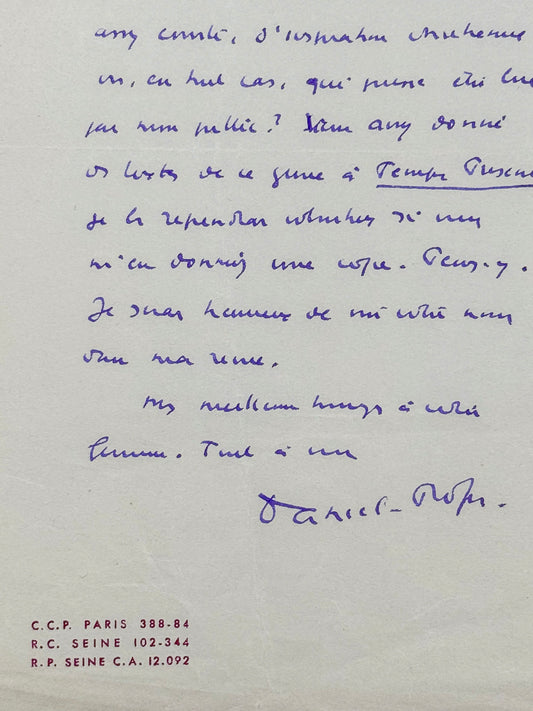 assez courte, d'inspiration chrétienne
ou, en tout cas, qui puisse être lue
par mon public? Vous avez donné
des textes de ce genre à Temps Présent
je le reprendrai volontiers si vous
m'en donniez une copie. Pensez-y.
Je serais heureux de voir votre nom
dans ma revue.
Mes meilleurs hommages à votre
femme. Tout à vous
Daniel-Rops.
C.C.P. PARIS 388-84
R.C. SEINE 102-344
R.P. SEINE C.A. 12.092